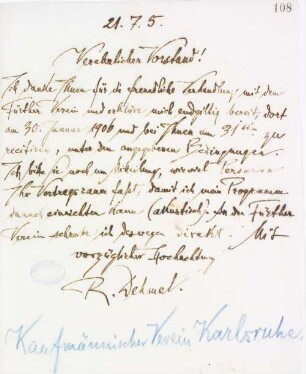 108
21.7.5.
Verehrlicher Vorstand!
Ich danke Ihnen für die freundliche Verhandlung mit dem
Fürther Verein und erkläre mich endgültig bereit, dort
am 30. Januar 1906 und bei Ihnen am 31sten zu
recitiren, unter den angegebenen Bedingungen.
Ich bitte Sie noch um Mitteilung, wieviel Personen
Ihr Vortragsraum faßt, damit ich mein Programm
danach einrichten kann (akustisch). An den Fürther
Verein schreibe ich deswegen direkt. Mit
vorzüglicher Hochachtung
R. Dehmel.
Kaufmännischer Verein Karlsruhe.